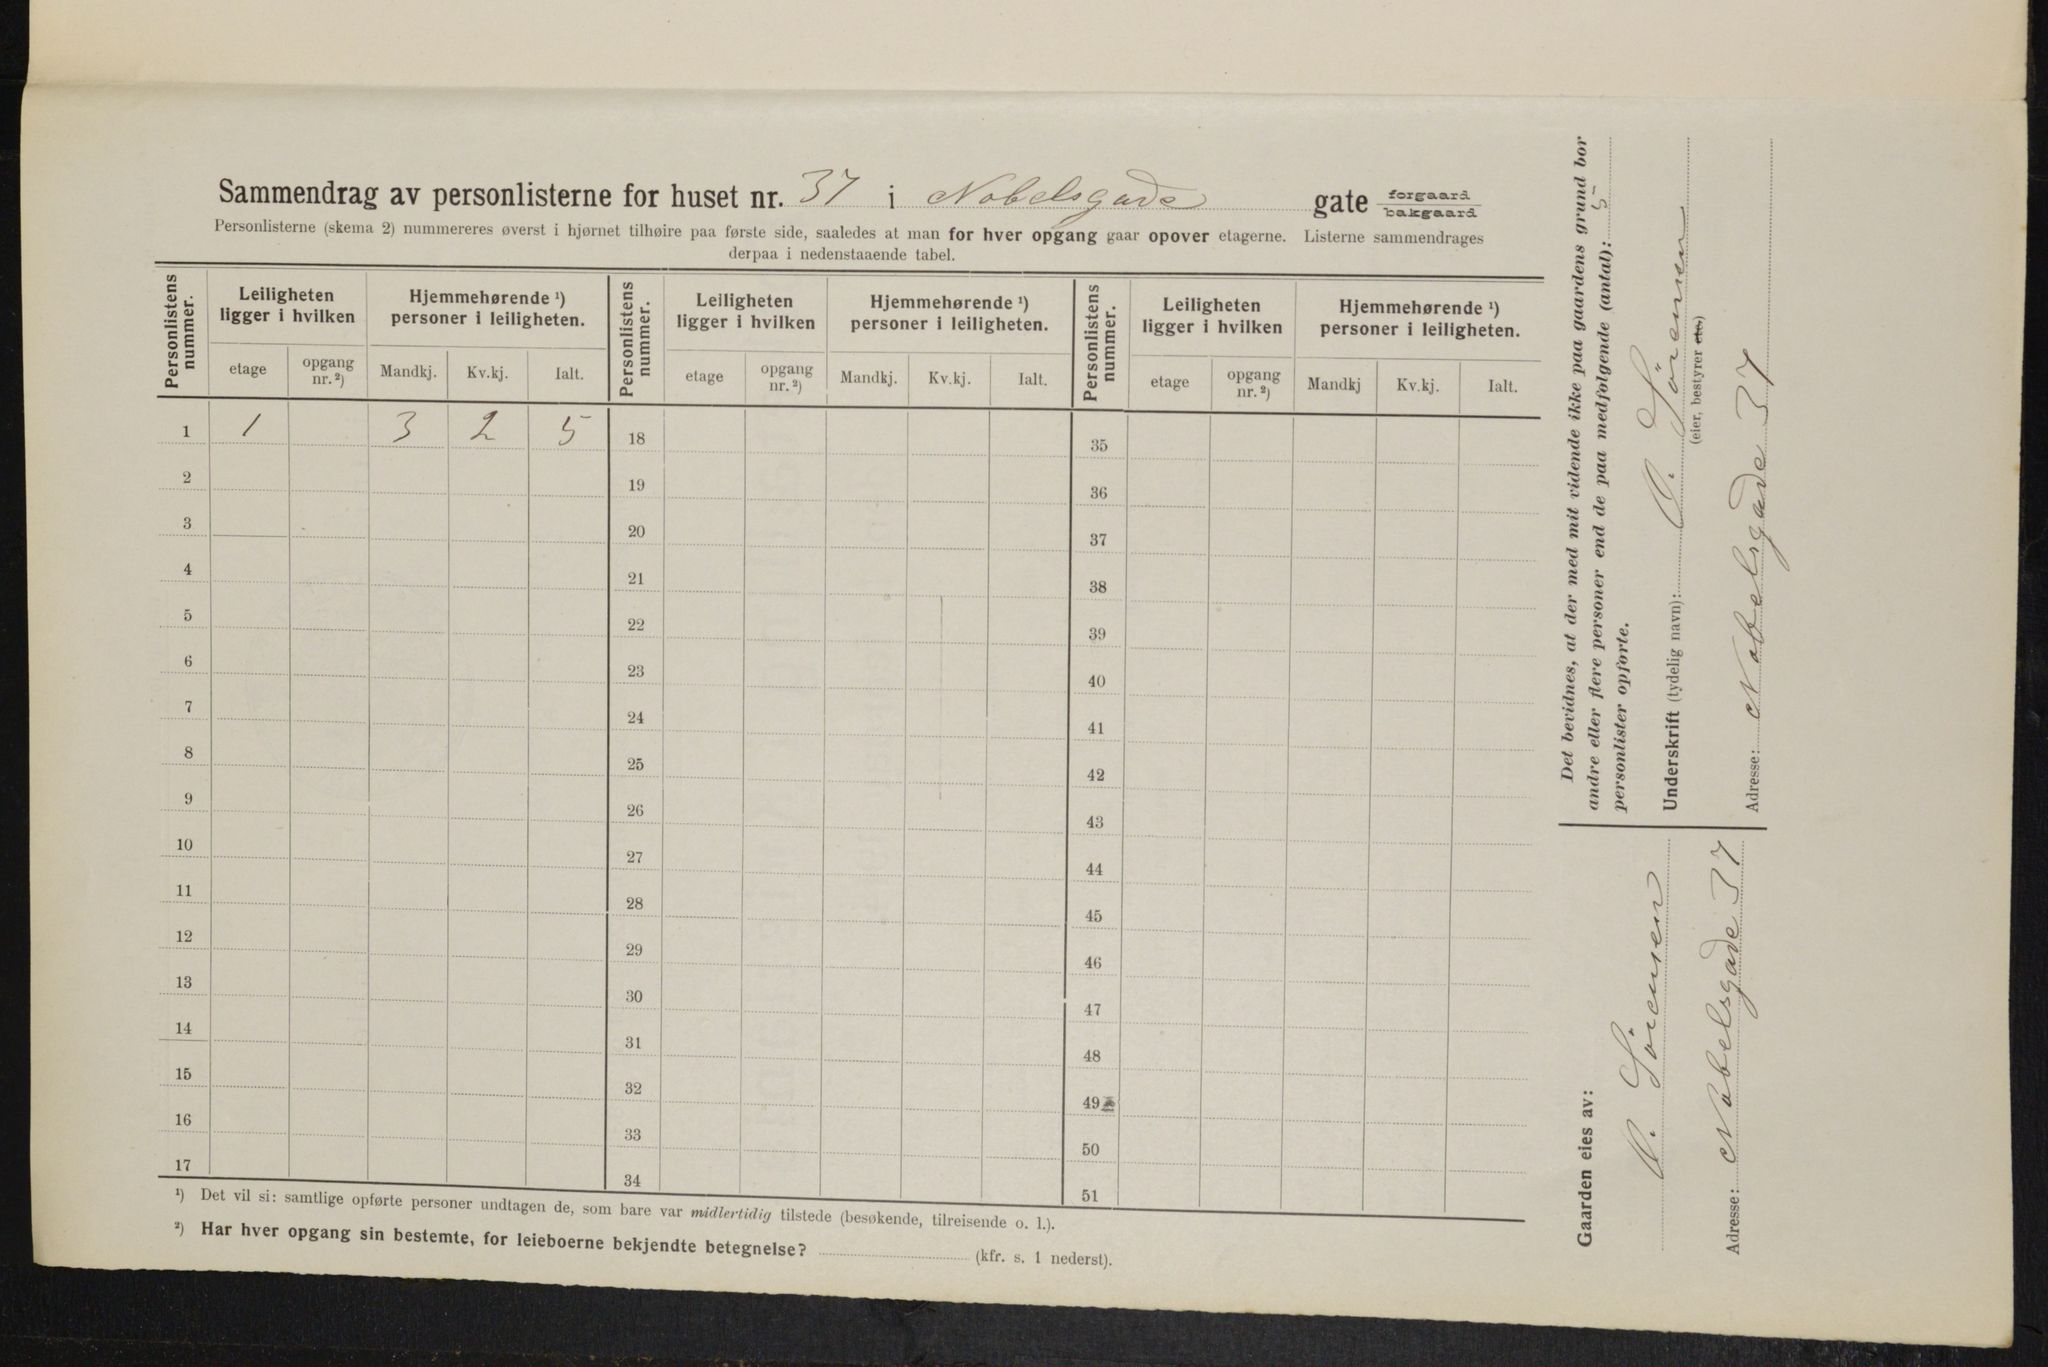 Sammendrag av personlisterne for huset nr. 37 i Nobelsgade gate forgaard bakgaard
Personlisterne (skema 2) nummereres øverst i hjørnet tilhøire paa første side, saaledes at man for hver opgang gaar opover etagerne. Listerne sammendrages
derpaa i nedenstaaende tabel.
Personlistens nummer. Leiligheten ligger i hvilken Hjemmehørende ¹) personer i leiligheten. Personlistens nummer. Leiligheten ligger i hvilken Hjemmehørende ¹) personer i leiligheten. Personlistens nummer. Leiligheten ligger i hvilken Hjemmehørende ¹) personer i leiligheten.
etage opgang nr. ²) Mandkj. Kv.kj. Ialt. etage opgang nr. ²) Mandkj. Kv.kj. Ialt. etage opgang nr. ²) Mandkj Kv.kj. Ialt.
1 1 3 2 5 18 35
2 19 36
3 20 37
4 21 38
5 22 39
6 23 40
7 24 41
8 25 42
9 26 43
10 27 44
11 28 45
12 29 46
13 30 47
14 31 48
15 32 49
16 33 50
17 34 51
¹) Det vil si: samtlige opførte personer undtagen de, som bare var midlertidig tilstede (besøkende, tilreisende o. l.).
²) Har hver opgang sin bestemte, for leieboerne bekjendte betegnelse? (kfr. s. 1 nederst).
Det bevidnes, at der med mit vidende ikke paa gaardens grund bor
andre eller flere personer end de paa medfølgende (antal): 5
personlister opførte.
Underskrift (tydelig navn): O. Sörensen
(eier, bestyrer etc.)
Adresse: Nobelsgade 37
Gaarden eies av:
O. Sörensen
Adresse: Nobelsgade 37